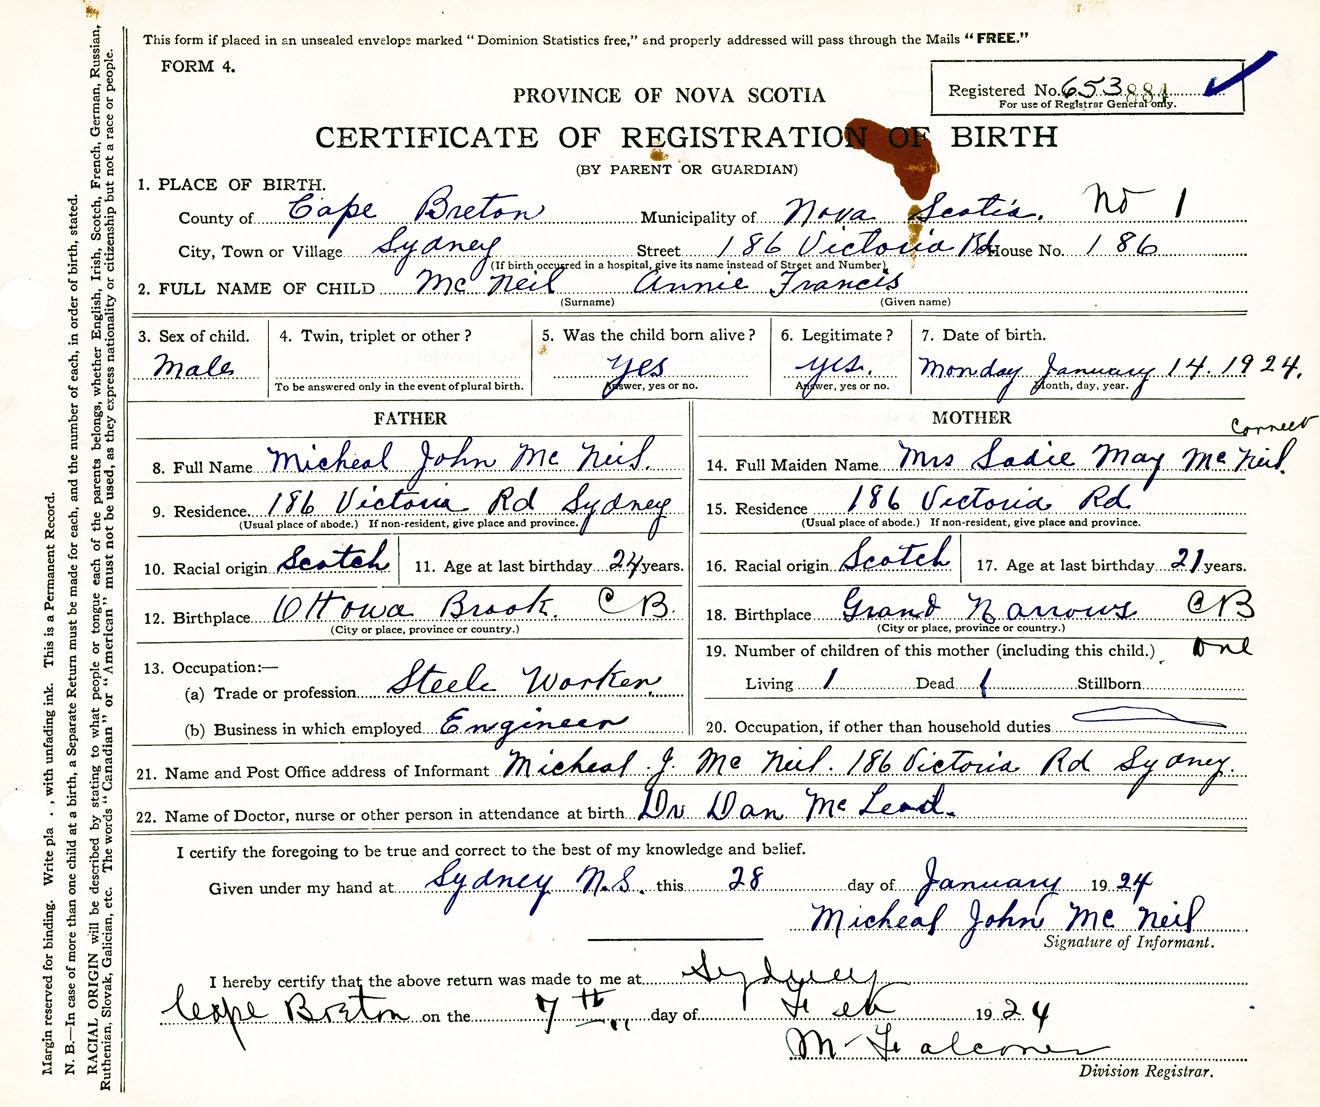 This form if placed in an unsealed envelope marked "Dominion Statistics free," and properly addressed will pass through the Mails "FREE."
FORM 4.
Registered No. 653 884
For use of Registrar General only.
PROVINCE OF NOVA SCOTIA
CERTIFICATE OF REGISTRATION OF BIRTH
(BY PARENT OR GUARDIAN)
1. PLACE OF BIRTH.
County of Cape Breton Municipality of Nova Scotia. No 1
City, Town or Village Sydney Street 186 Victoria Rd House No. 186
(If birth occurred in a hospital, give its name instead of Street and Number)
2. FULL NAME OF CHILD Mc Neil Annie Francis
(Surname) (Given name)
3. Sex of child. 4. Twin, triplet or other? 5. Was the child born alive? 6. Legitimate? 7. Date of birth.
Male yes yes. Monday January 14. 1924.
To be answered only in the event of plural birth. Answer, yes or no. Answer, yes or no. Month, day, year.
FATHER MOTHER
correct
8. Full Name Micheal John Mc Neil. 14. Full Maiden Name Mrs Sadie May Mc Neil.
9. Residence. 186 Victoria Rd Sydney 15. Residence 186 Victoria Rd
(Usual place of abode.) If non-resident, give place and province. (Usual place of abode.) If non-resident, give place and province.
10. Racial origin Scotch 11. Age at last birthday 24 years. 16. Racial origin Scotch 17. Age at last birthday 21 years.
12. Birthplace Ottowa Brook. C B. 18. Birthplace Grand Narrows C B
(City or place, province or country.) (City or place, province or country.)
19. Number of children of this mother (including this child.) one
13. Occupation:—
(a) Trade or profession Steele Worker Living 1 Dead 1 Stillborn
(b) Business in which employed Engineer 20. Occupation, if other than household duties
21. Name and Post Office address of Informant Micheal J. Mc Neil. 186 Victoria Rd Sydney.
22. Name of Doctor, nurse or other person in attendance at birth Dr Dan Mc Leod.
I certify the foregoing to be true and correct to the best of my knowledge and belief.
Given under my hand at Sydney N.S. this 28 day of January 1924
Micheal John Mc Neil
Signature of Informant.
I hereby certify that the above return was made to me at Sydney
Cape Breton on the 7th day of Feb 1924
M Falconer
Division Registrar.
Margin reserved for binding. Write pla , with unfading ink. This is a Permanent Record.
N. B.—In case of more than one child at a birth, a Separate Return must be made for each, and the number of each, in order of birth, stated.
RACIAL ORIGIN will be described by stating to what people or tongue each of the parents belongs, whether English, Irish, Scotch, French, German, Russian,
Ruthenian, Slovak, Galician, etc. The words "Canadian" or "American" must not be used, as they express nationality or citizenship but not a race or people.